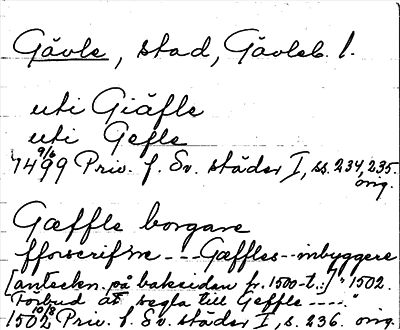 Gävle, stad, Gävleb. l.
uti Giäfle
uti Gefle
9/6
1499 Priv. f. Sv. städer I, ss. 234, 235.
orig.
Gæffle borgare
fforscrifne --- Gæffles-inbyggere
[anteckn. på baksidan fr. 1500-t.:] "1502.
Förbud at segla till Geffle ----."
10/8
1502 Priv. f. Sv. städer I, s. 236. orig.